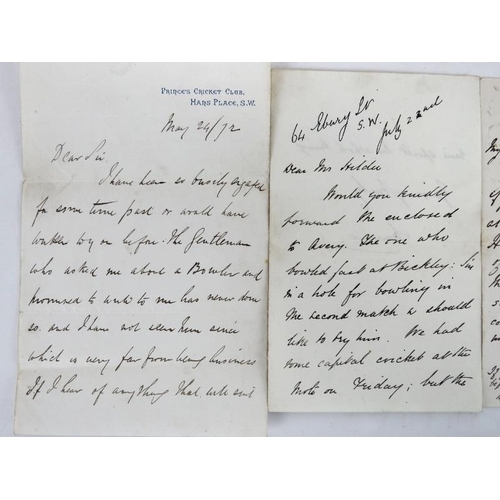 PRINCE'S CRICKET CLUB,
HANS PLACE, S.W.
May 24/72
Dear Sir
I have been so busily engaged
for some time past or would have
written to you before. The Gentleman
who asked me about a Bowler and
promised to write to me has never done
so. and I have not seen him since
which is very far from being business
If I hear of anything that will suit
64 Ebury St
S.W. July 22nd
Dear Mr Hilder
Would you kindly
forward the enclosed
to Avery. The one who
bowled fast at Bickley: I'm
in a hole for bowling in
the second match & should
like to try him. We had
some capital cricket at the
Mote on Friday; but the